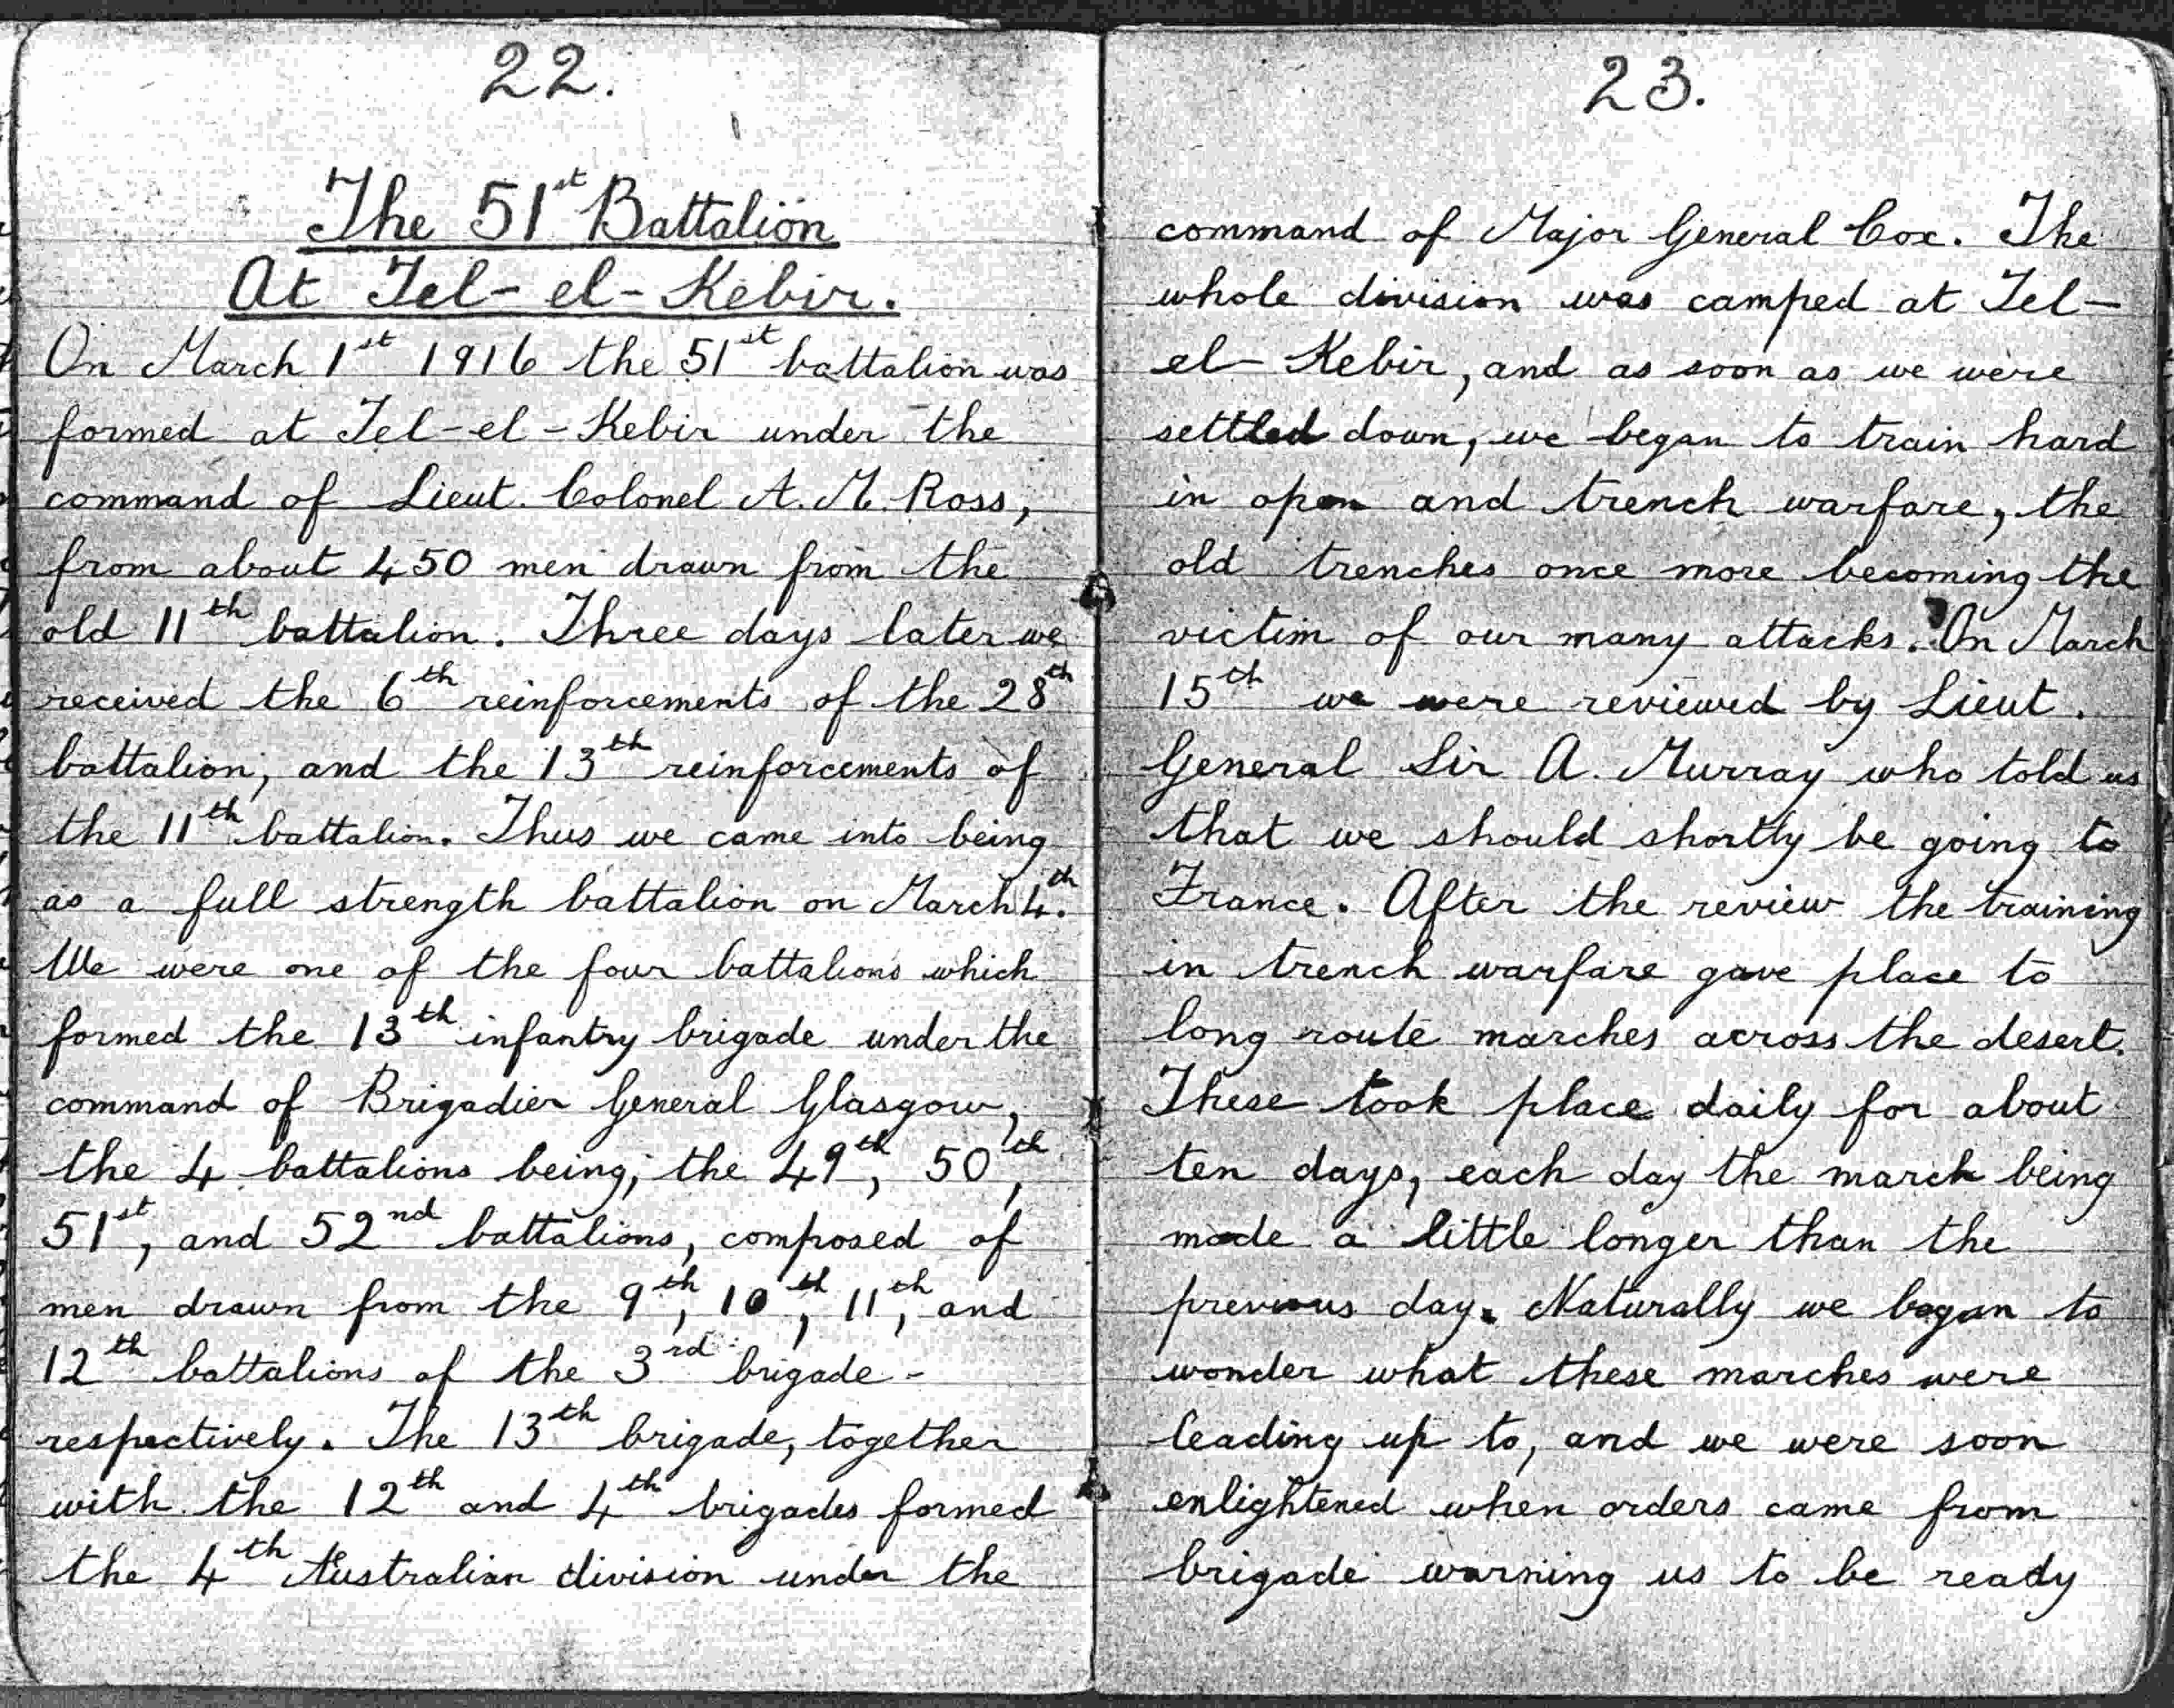 22.
The 51st Battalion
At Tel-el-Kebir.
On March 1st 1916 the 51st battalion was
formed at Tel-el-Kebir under the
command of Lieut. Colonel A. M. Ross,
from about 450 men drawn from the
old 11th battalion. Three days later we
received the 6th reinforcements of the 28th
battalion, and the 13th reinforcements of
the 11th battalion. Thus we came into being
as a full strength battalion on March 4th.
We were one of the four battalions which
formed the 13th infantry brigade under the
command of Brigadier General Glasgow,
the 4 battalions being, the 49th, 50th,
51st, and 52nd battalions, composed of
men drawn from the 9th, 10th, 11th, and
12th battalions of the 3rd brigade -
respectively. The 13th brigade, together
with the 12th and 4th brigades formed
the 4th Australian division under the
23.
command of Major General Cox. The
whole division was camped at Tel-
el-Kebir, and as soon as we were
settled down, we began to train hard
in open and trench warfare, the
old trenches once more becoming the
victim of our many attacks. On March
15th we were reviewed by Lieut.
General Sir A. Murray who told us
that we should shortly be going to
France. After the review the training
in trench warfare gave place to
long route marches across the desert.
These took place daily for about
ten days, each day the march being
made a little longer than the
previous day. Naturally we began to
wonder what these marches were
leading up to, and we were soon
enlightened when orders came from
brigade warning us to be ready